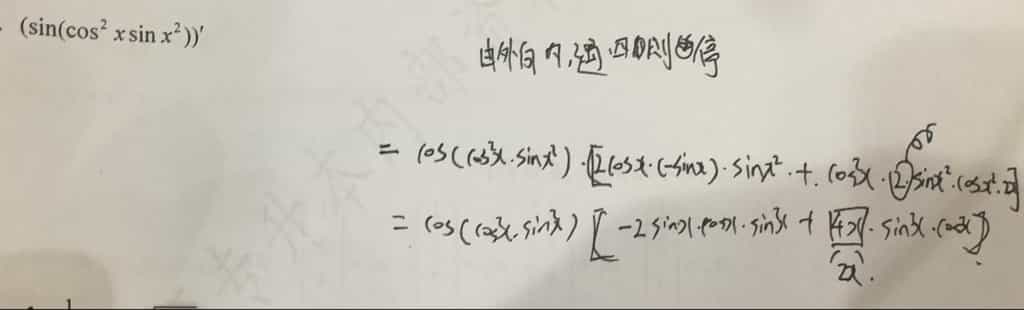 (sin(cos² x sin x²))′
由外向内,遇四则暂停
= cos(cos²x·sinx²)·[2cosx·(-sinx)·sinx²+cos²x·2sinx²·cosx²·2]
= cos(cos²x·sin²x)[-2sinx·cosx·sin²x+4x·sin²x·cosx²]
2x.